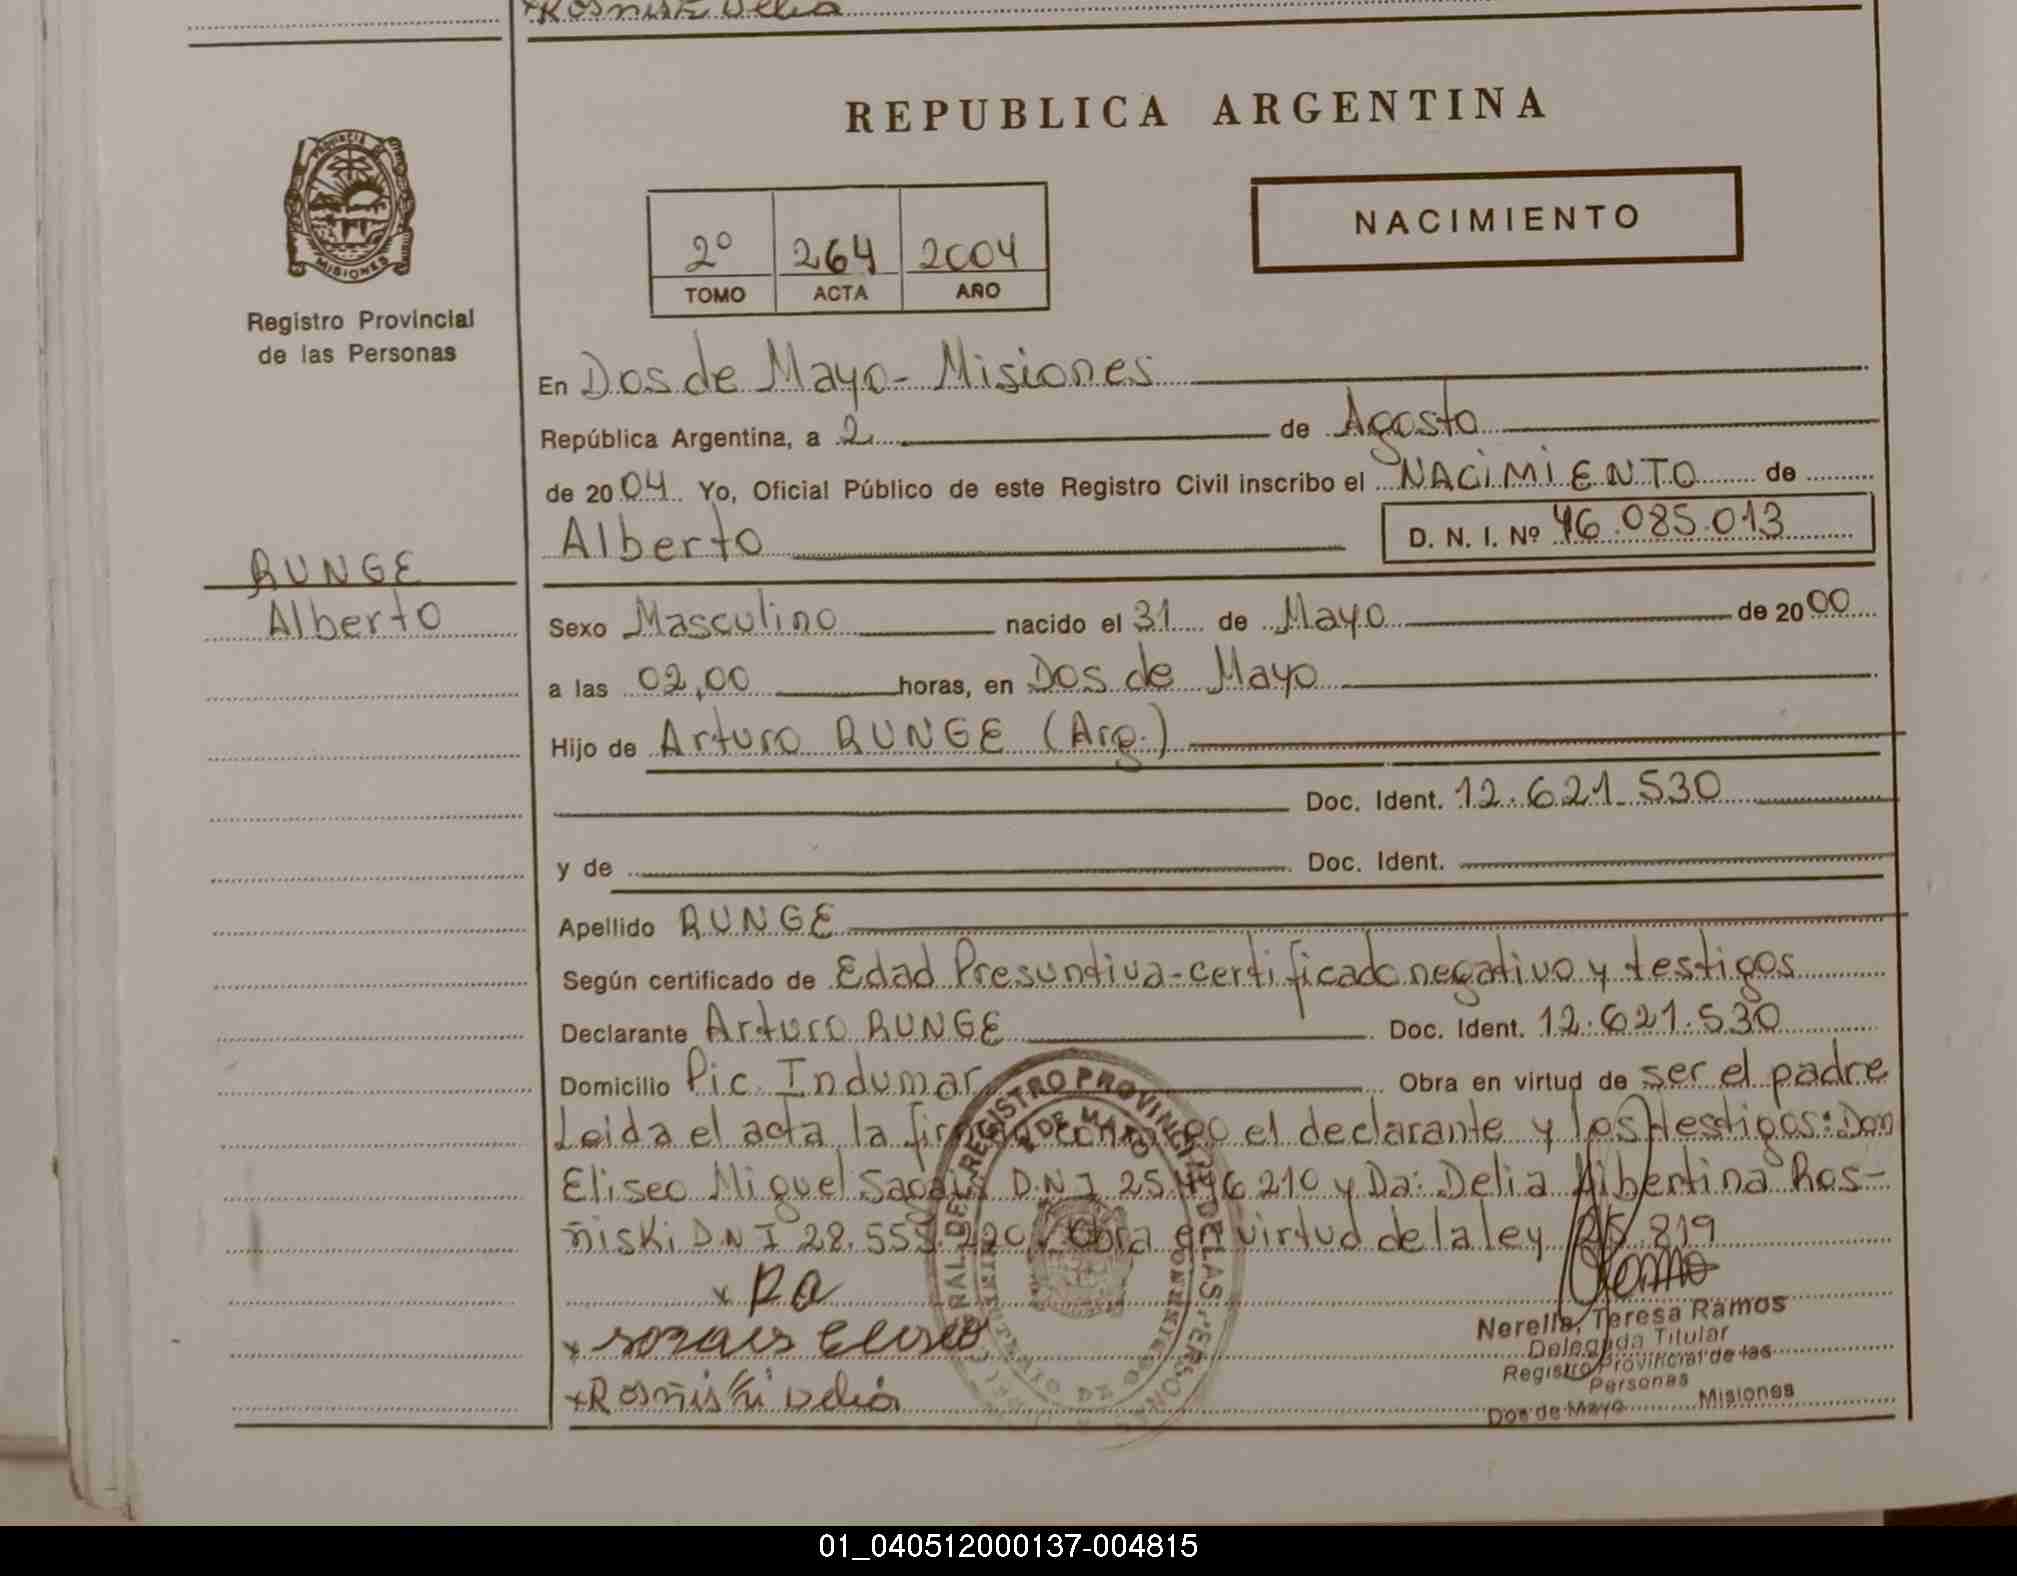 Rosniski Delia
REPUBLICA ARGENTINA
PROVINCIA DE
MISIONES
Registro Provincial
de las Personas
2º 264 2004
TOMO ACTA AÑO
NACIMIENTO
En Dos de Mayo - Misiones
República Argentina, a 2 de Agosto
de 2004 Yo, Oficial Público de este Registro Civil inscribo el NACIMIENTO de
Alberto D. N. I. Nº 46.085.013
RUNGE
Alberto
Sexo Masculino nacido el 31 de Mayo de 2000
a las 02,00 horas, en Dos de Mayo
Hijo de Arturo RUNGE (Arg.)
Doc. Ident. 12.621.530
y de Doc. Ident.
Apellido RUNGE
Según certificado de Edad Presuntiva - certificado negativo y testigos
Declarante Arturo RUNGE Doc. Ident. 12.621.530
Domicilio Pic. Indumar Obra en virtud de ser el padre
Leida el acta la firman conmigo el declarante y los testigos: Don
Eliseo Miguel DNI 25.496.210 y Da: Delia Albertina Ros-
ñiski DNI 28. Obra en virtud de la ley 25.819
x RA
x Eliseo
x Rosñiski Delia
REGISTRO PROVINCIAL DE LAS PERSONAS
2 DE MAYO
Nerella, Teresa Ramos
Delegada Titular
Registro Provincial de las
Personas
Dos de Mayo Misiones
01_040512000137-004815